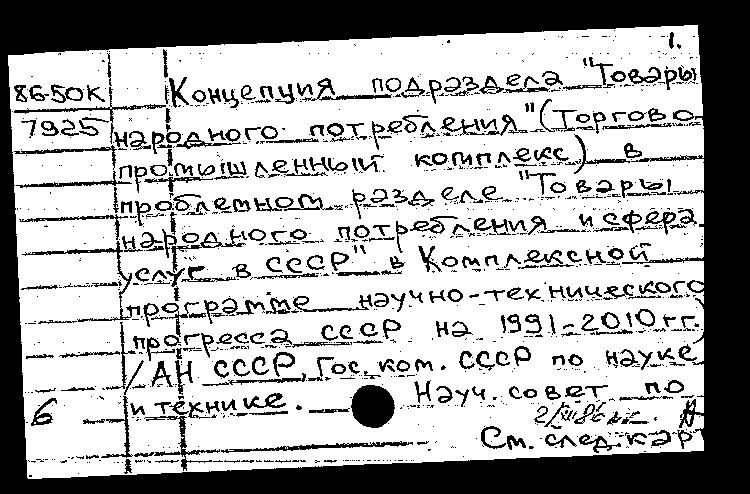 1.
86-50К Концепция подраздела "Товары
7925 народного потребления" (Торгово-
промышленный комплекс) в
проблемном разделе "Товары
народного потребления и сфера
услуг в СССР" в Комплексной
программе научно-технического
прогресса СССР на 1991-2010 гг.
/ АН СССР, Гос. ком. СССР по науке
6 и технике. Науч. совет по
См. след. карт